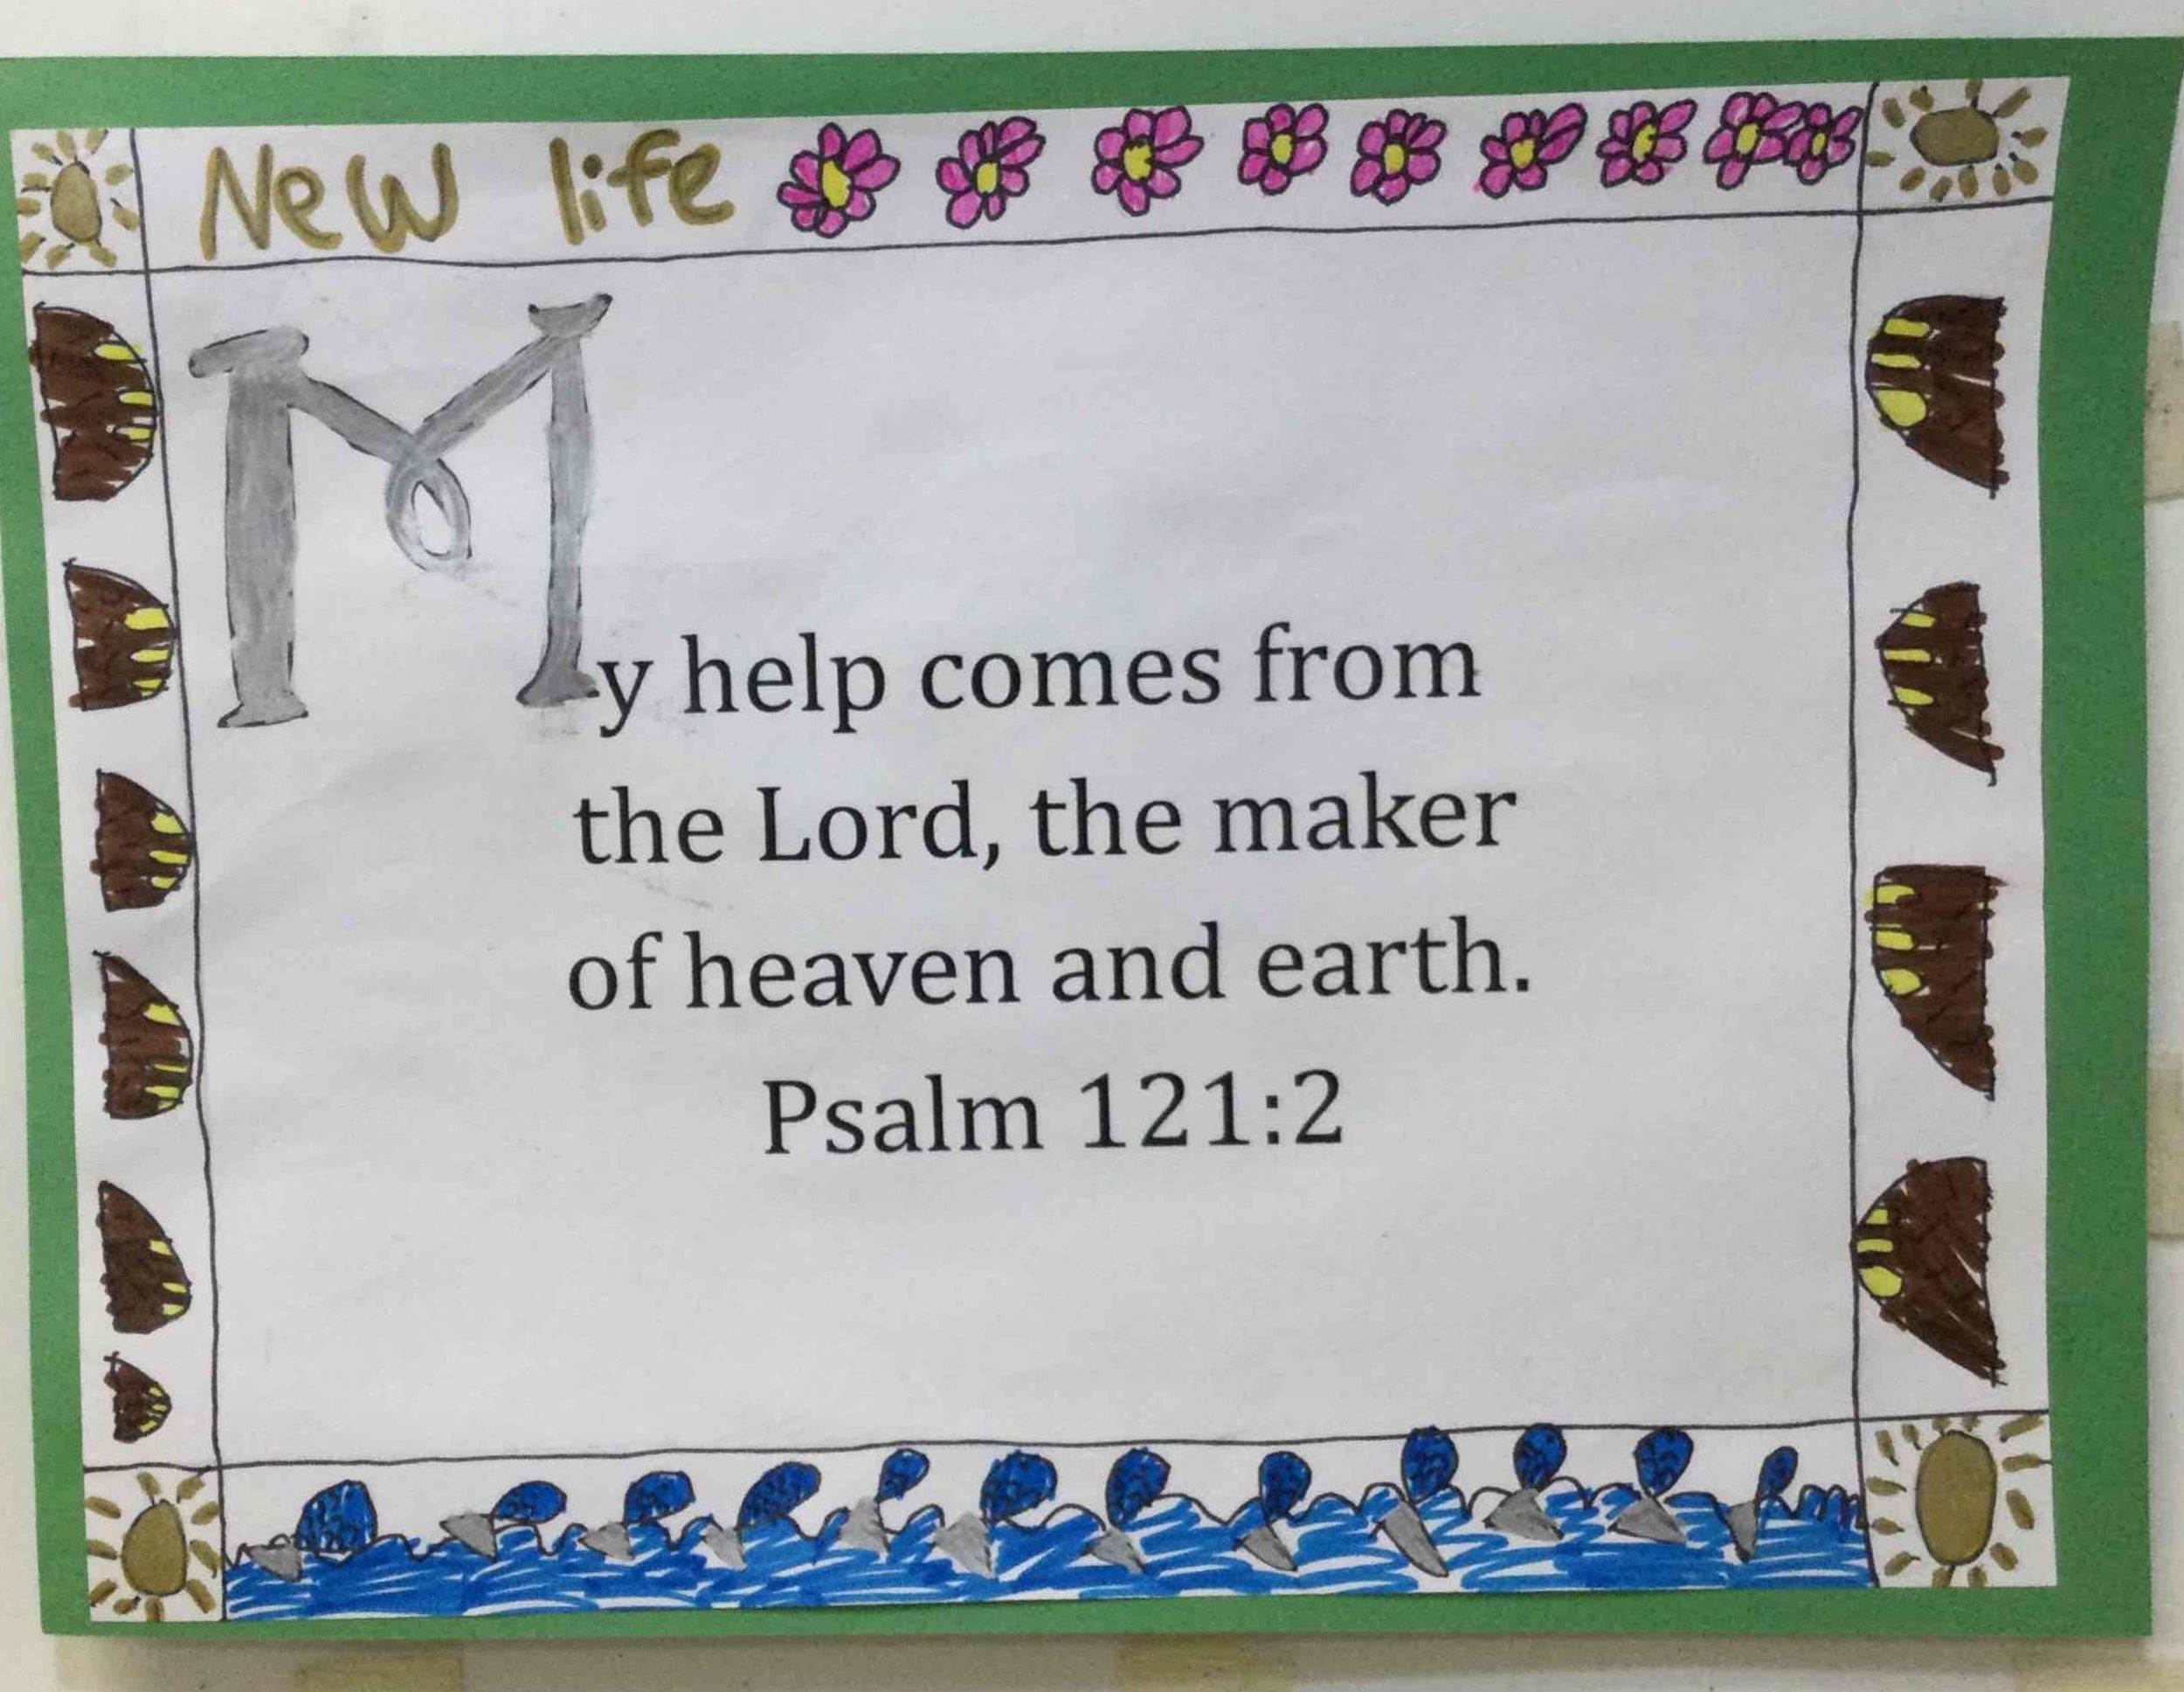 New life
My help comes from
the Lord, the maker
of heaven and earth.
Psalm 121:2